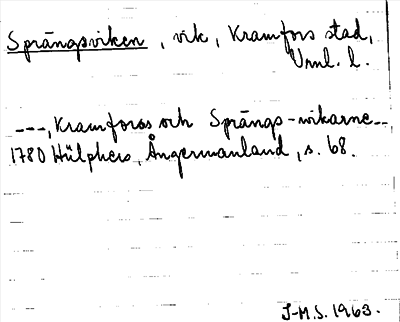 Sprängsviken, vik, Kramfors stad,
Vnnl. l.
---, Kramforss och Sprängs-wikarne--
1780 Hülphers, Ångermanland, s. 68.
J-M.S. 1963.